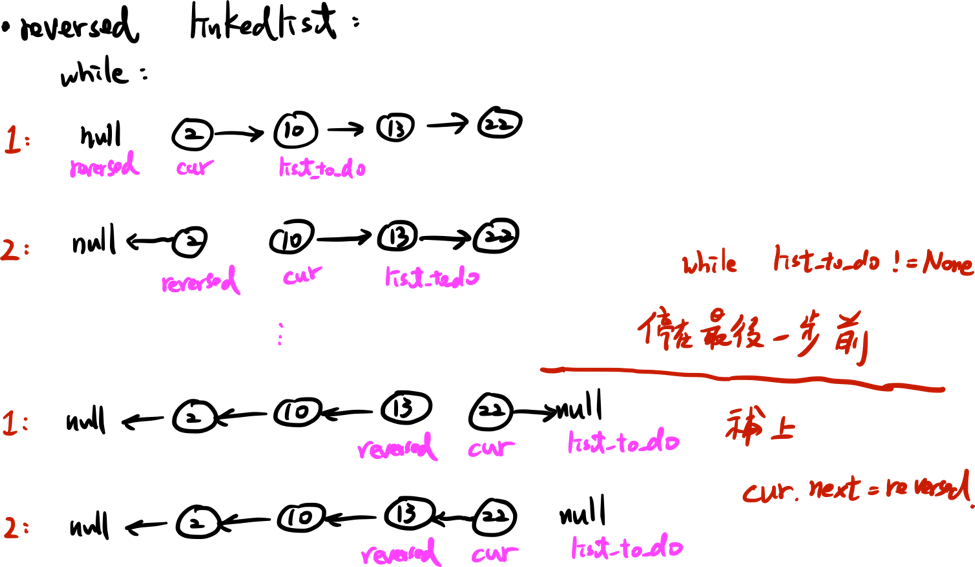 • reversed linkedlist :
while :
1: null 2 → 10 → 13 → 22
reversed cur list_to_do
2: null ← 2 10 → 13 → 22
reversed cur list_todo
⋮
while list_to_do != None
停在最後一步前
1: null ← 2 ← 10 ← 13 22 → null
reversed cur list_to_do
補上
cur.next = reversed.
2: null ← 2 ← 10 ← 13 ← 22 null
reversed cur list_to_do